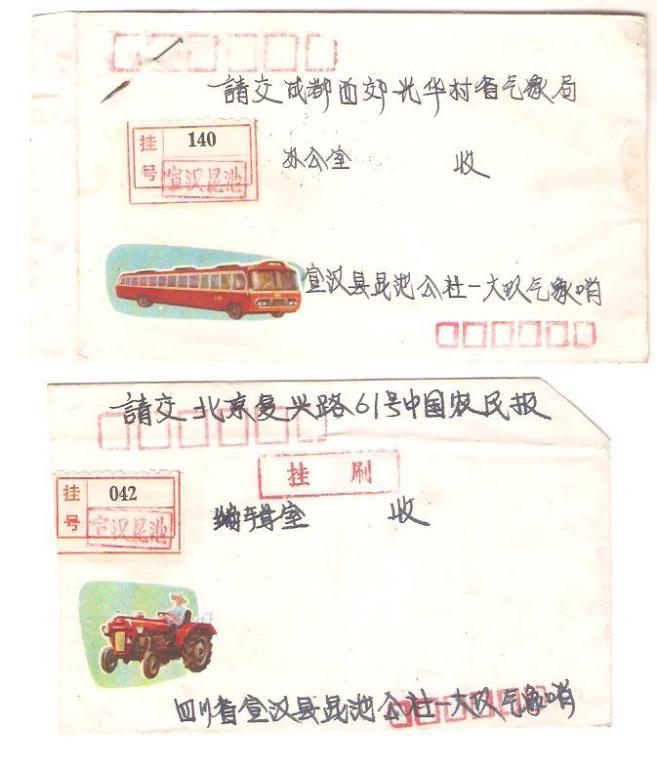 請交成都西郊光华村省气象局
挂号 140
宣汉昆池
办公室 收
宣汉县昆池公社一大队气象哨
請交北京复兴路61号中国农民报
挂刷
挂号 042
宣汉昆池
编辑室 收
四川省宣汉县昆池公社一大队气象哨